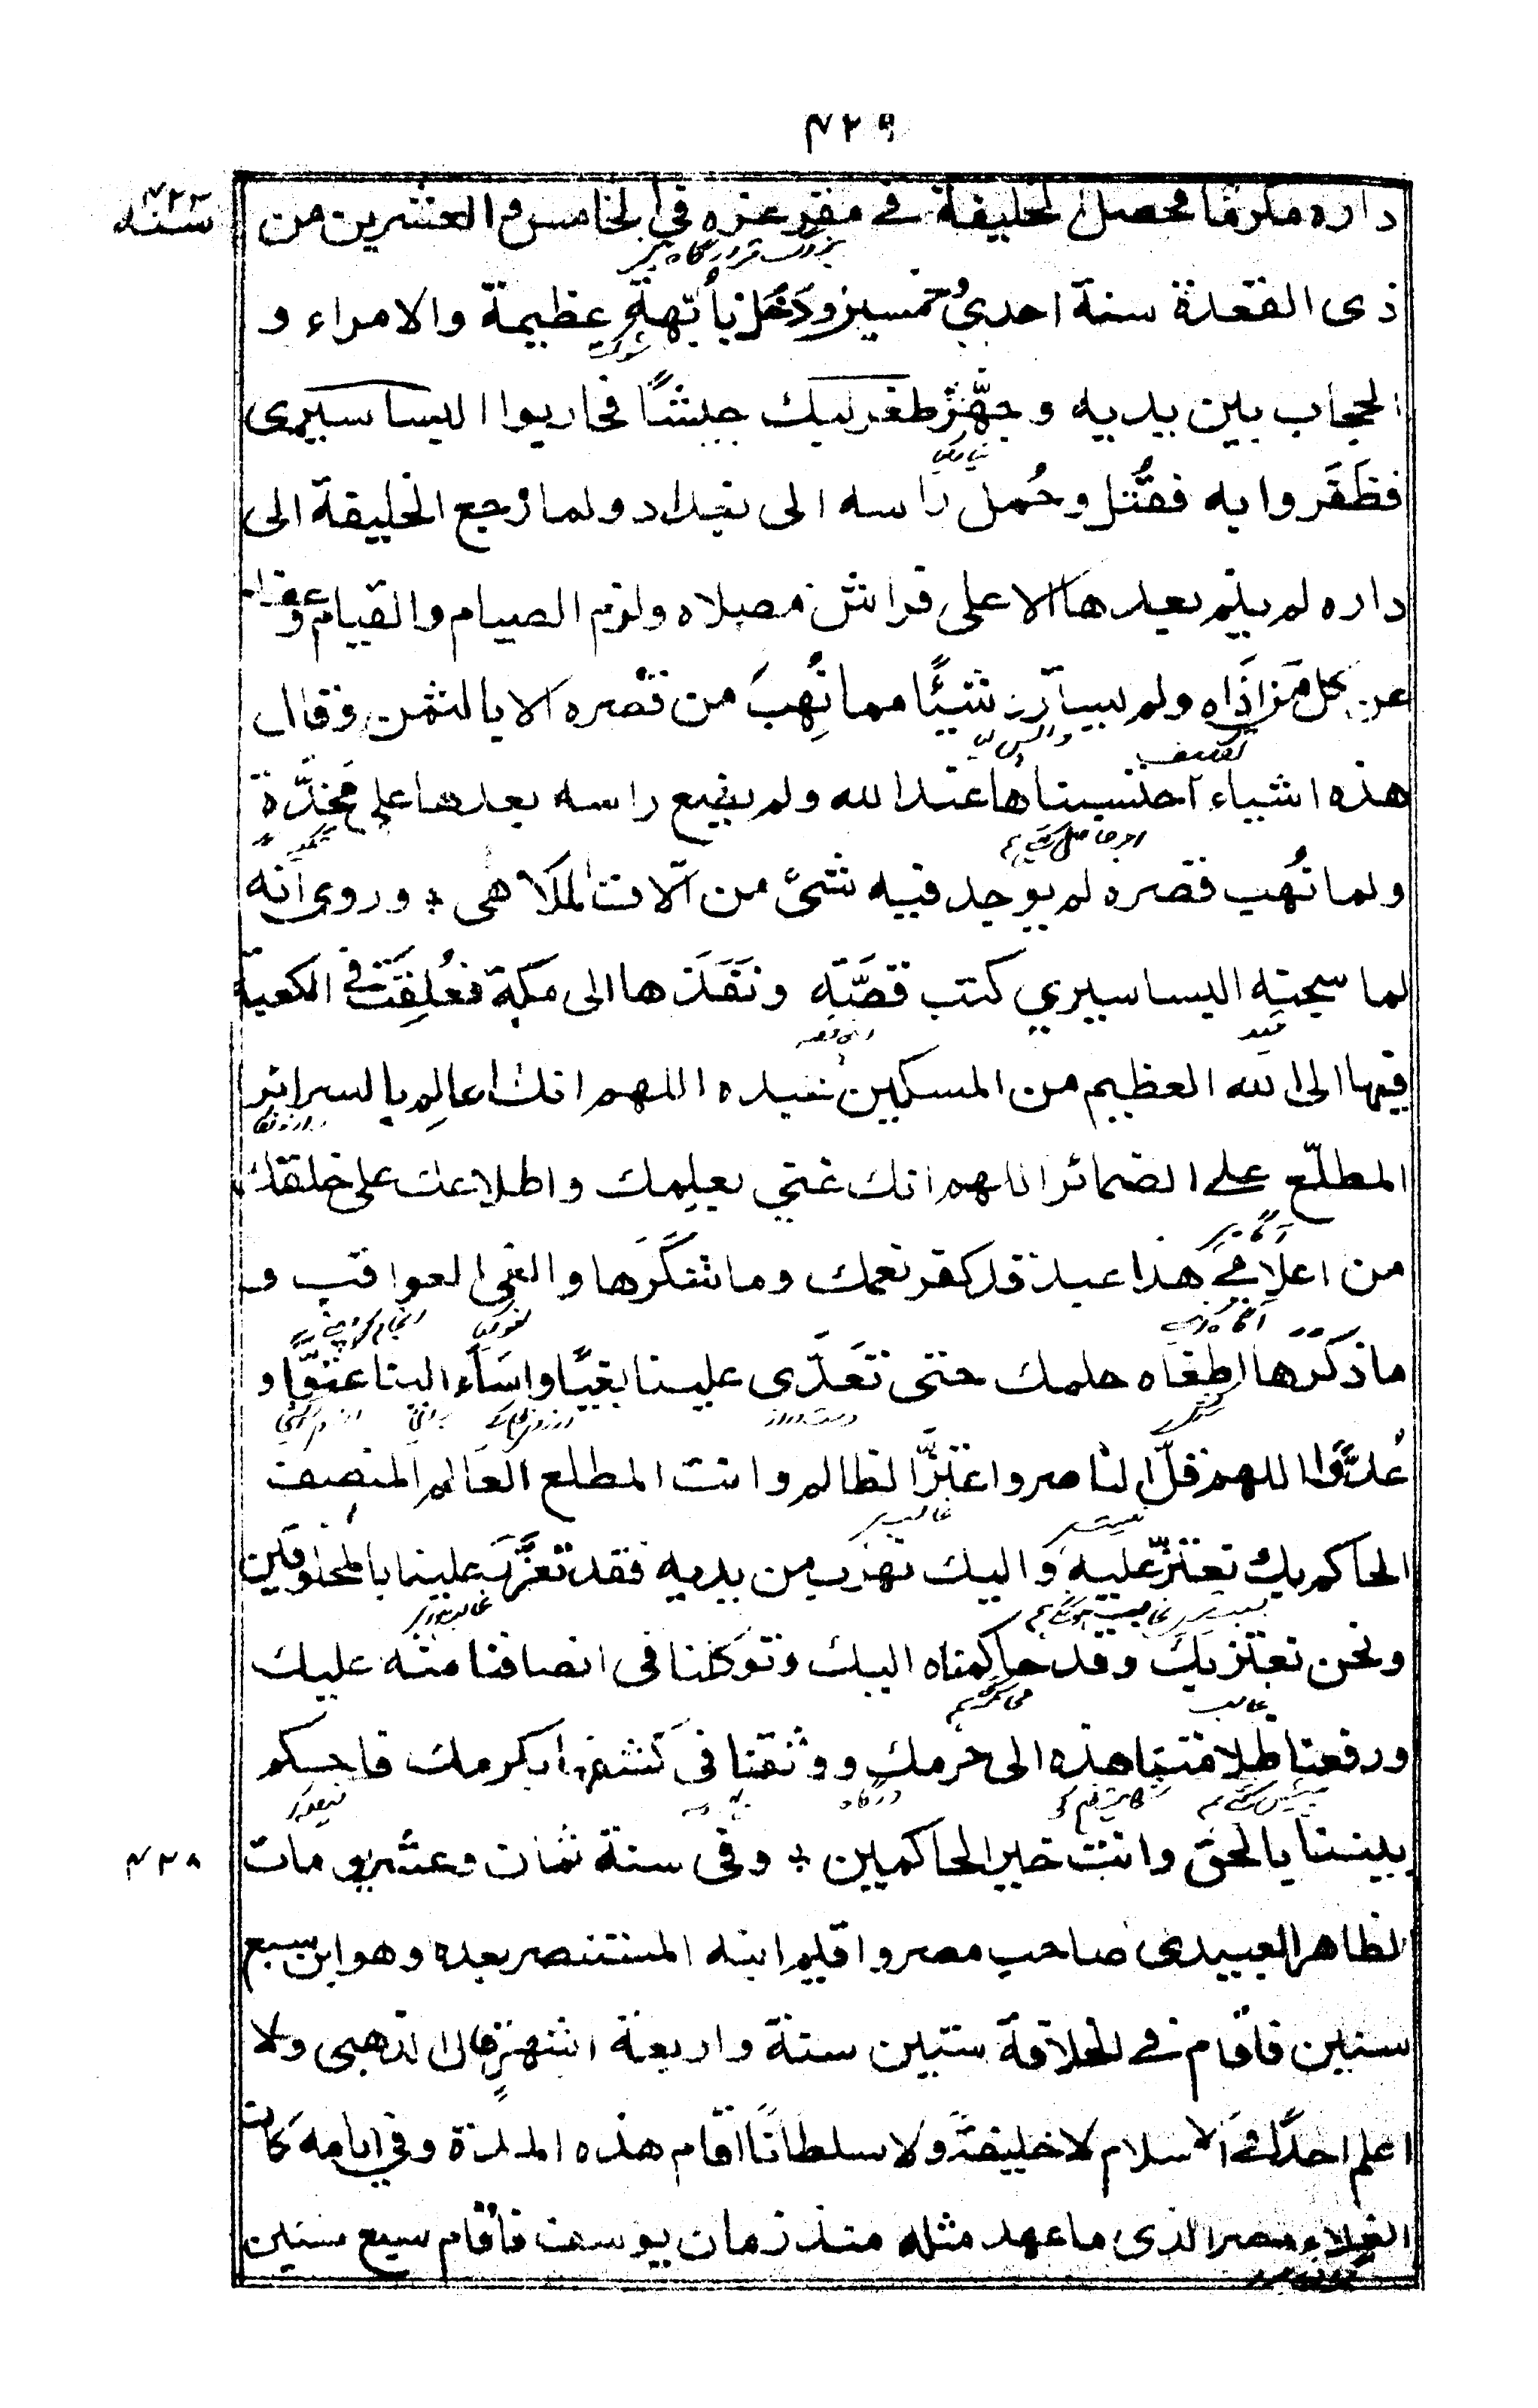 ٤٢٩
سنة ٤٢٢
داره مكرما فحصل الخليفة في مقر عزه في الخامس والعشرين من
ذى القعدة سنة احدى وخمسين ودخل بأبّهةٍ عظيمة والامراء و
الحجاب بين يديه وجهّز طغرلبك جيشًا فحاربوا البساسيرى
فظَفَروا به فقُتل وحُمل راسه الى بغداد ولما رجع الخليفة الى
داره لم ينم بعدها الا على فراش مصلاه ولزم الصيام والقيام وعفا
عن كل من اذَاه ولم يسترد شيئًا مما نُهِبَ من قصره الا بالثمن وقال
هذه اشياء احتسبناها عند الله ولم يضع راسه بعدها على مخدّة
ولما نُهب قصره لم يوجد فيه شئ من آلات الملاهى ٭ وروى انه
لما سجنه البساسيري كتب قصَّته ونفَذها الى مكة فعُلِقَت في الكعبة
فيها الى الله العظيم من المسكين عبده اللهم انك عالِم بالسرائر
المطلّع على الضمائر اللهم انك غني بعلمك واطلاعك على خلقك
من اعلامي هذا عبد قد كفر نعمك وما شكَرَها والغى العواقب و
ما ذكَرها اطغاه حلمك حتى تعَدّى علينا بغيًا واسَاء الينا عتوًّا و
عُدوًّا اللهم قلّ الناصر واعتزّ الظالم وانت المطلع العالم المنصف
الحاكم بك نعتزّ عليه واليك نهرب من يديه فقد تعزّز علينا بالمخلوقين
ونحن نعتز بك وقد حاكمناه اليك وتوكلنا فى انصافنا منه عليك
ورفعنا ظلامتنا هذه الى حرمك ووثقنا فى كشفها بكرمك فاحكم
بيننا بالحق وانت خير الحاكمين ٭ وفى سنة ثمان وعشرين مات
٤٢٨
الظاهر العبيدى صاحب مصر واقيم ابنه المستنصر بعده وهو ابن سبع
سنين فاقام في الخلافة ستين سنة واربعة اشهر قال الذهبى ولا
اعلم احدًا في الاسلام لا خليفةً ولا سلطانًا اقام هذه المدة وفي ايامه كان
الغلاء بمصر الذى ما عهد مثله منذ زمان يوسف فاقام سبع سنين